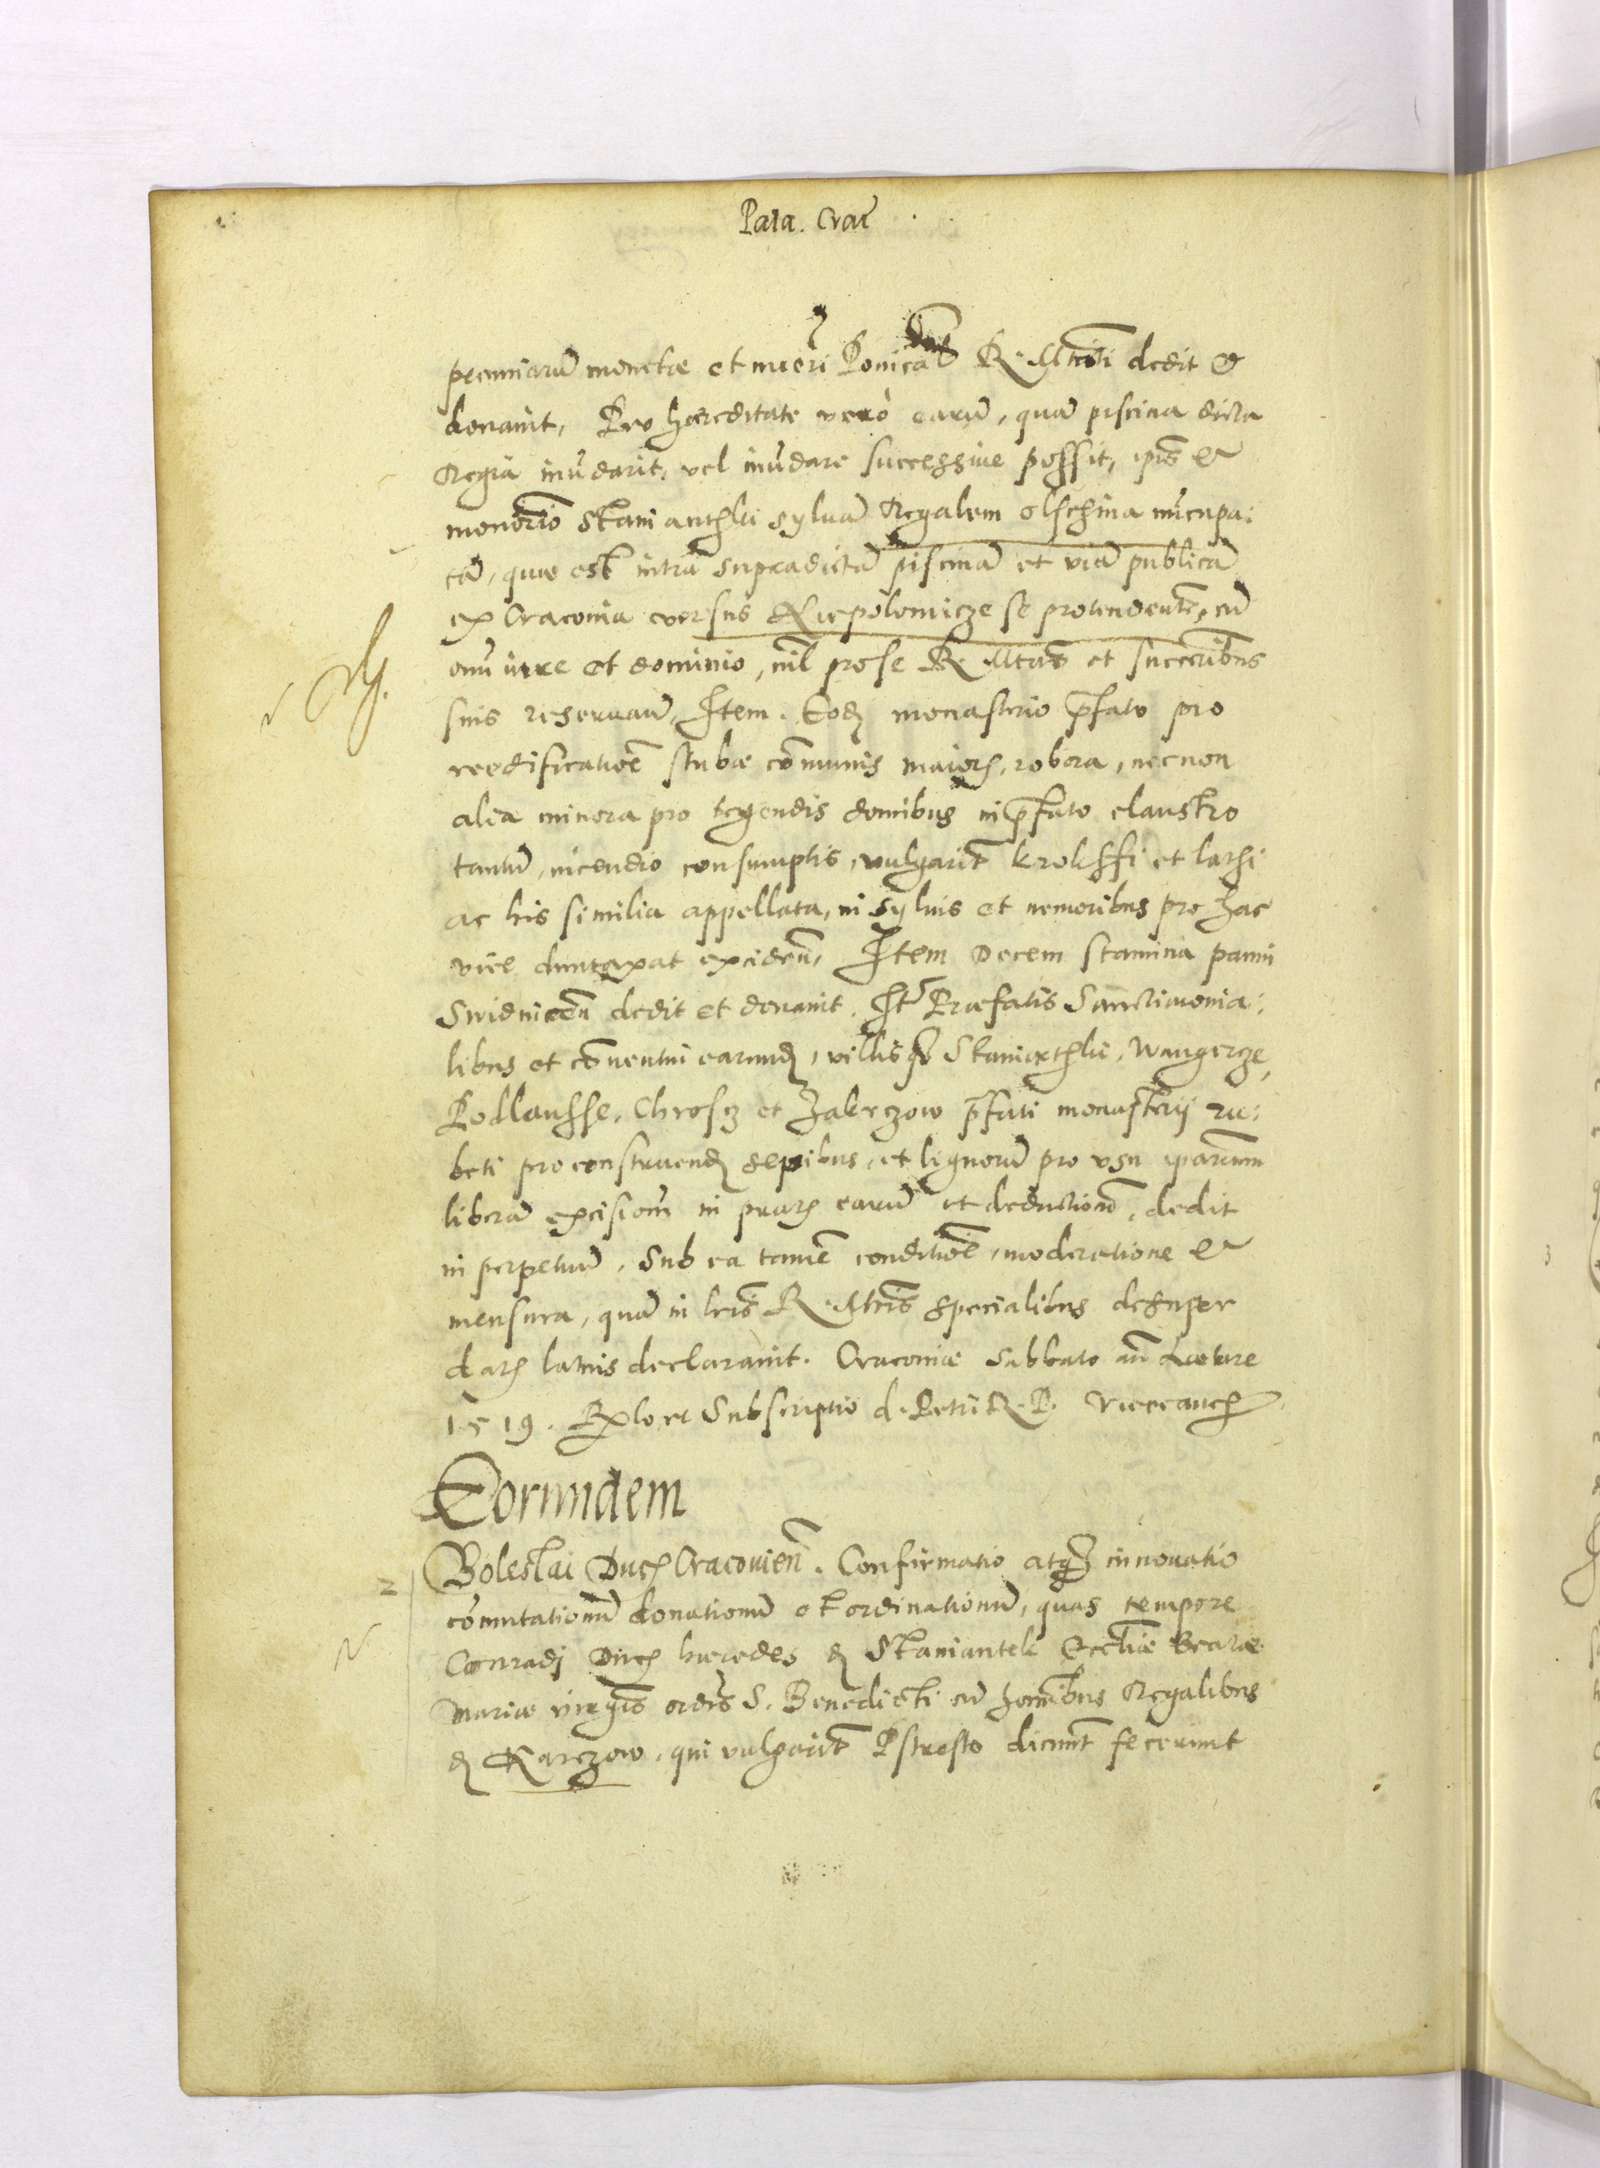 Pala. Crac̄
pecuniarū monetae et nūeri Ponica R. Mtēti dedit &
donauit, Pro haereditate verò earū, quā piscina dicta
Regia inūdarit, vel inūdare successiue possit, ip̄is &
monōrio Staniantheli syluā Regalem olschina nūcupa:
tā, quae est intra supradictā piscinā et viā publicā
ex Cracouia versus Niepolomicze se protendentē, cū
oīnī iure et dominio, nīl pro se R. Mtas et succēribus
suis reseruan̄, Item. Eodē monasterio p̄fato pro
reedificatiōe stubae cōmunis maiorē, robora, necnon
alia minora pro tegendis domibus in p̄fato claustro
tantū, incendio consumptis, vulgarit̄ krokffi et lathi
ac his similia appellata, in syluis et nemoribus pro hac
vice duntaxat exciden̄, Item Decem stamina panni
Swidnicen̄ dedit et donauit. It̄ Praefatis Sanctimonia:
libus et cōuentui earundē, villisq̄ Staniantheli, Wangercze,
Podlansse, Chrosez et Zakrzow p̄fati monasterij ru:
beti pro construendē sepibus, et lignorū pro vsu ip̄arum
liberā excisionē in earū et deductionē, dedit
in perpetuū, Sub ea tamē conditiōe, moderatione &
mensura, quā in lr̄is R. Mtis specialibus desuper
datē latius declarauit. Cracouiae Sabbato an̄ Laetare
1519. et Subscriptio d. Petri R. P. Vicecancē
Eorundem
2 Boleslai Ducē Cracouien̄. Confirmatio atq̄ innouatio
cōmutationū donationū et ordinationū, quas tempore
Conradj Ducē haeredes dē Stanianteli Eccliae Beatae
Mariae virgīs ordīs S. Benedicti cū hominibus Regalibus
dē Karczow, qui vulgarit̄ Pstrosto dicunt̄ fecerunt